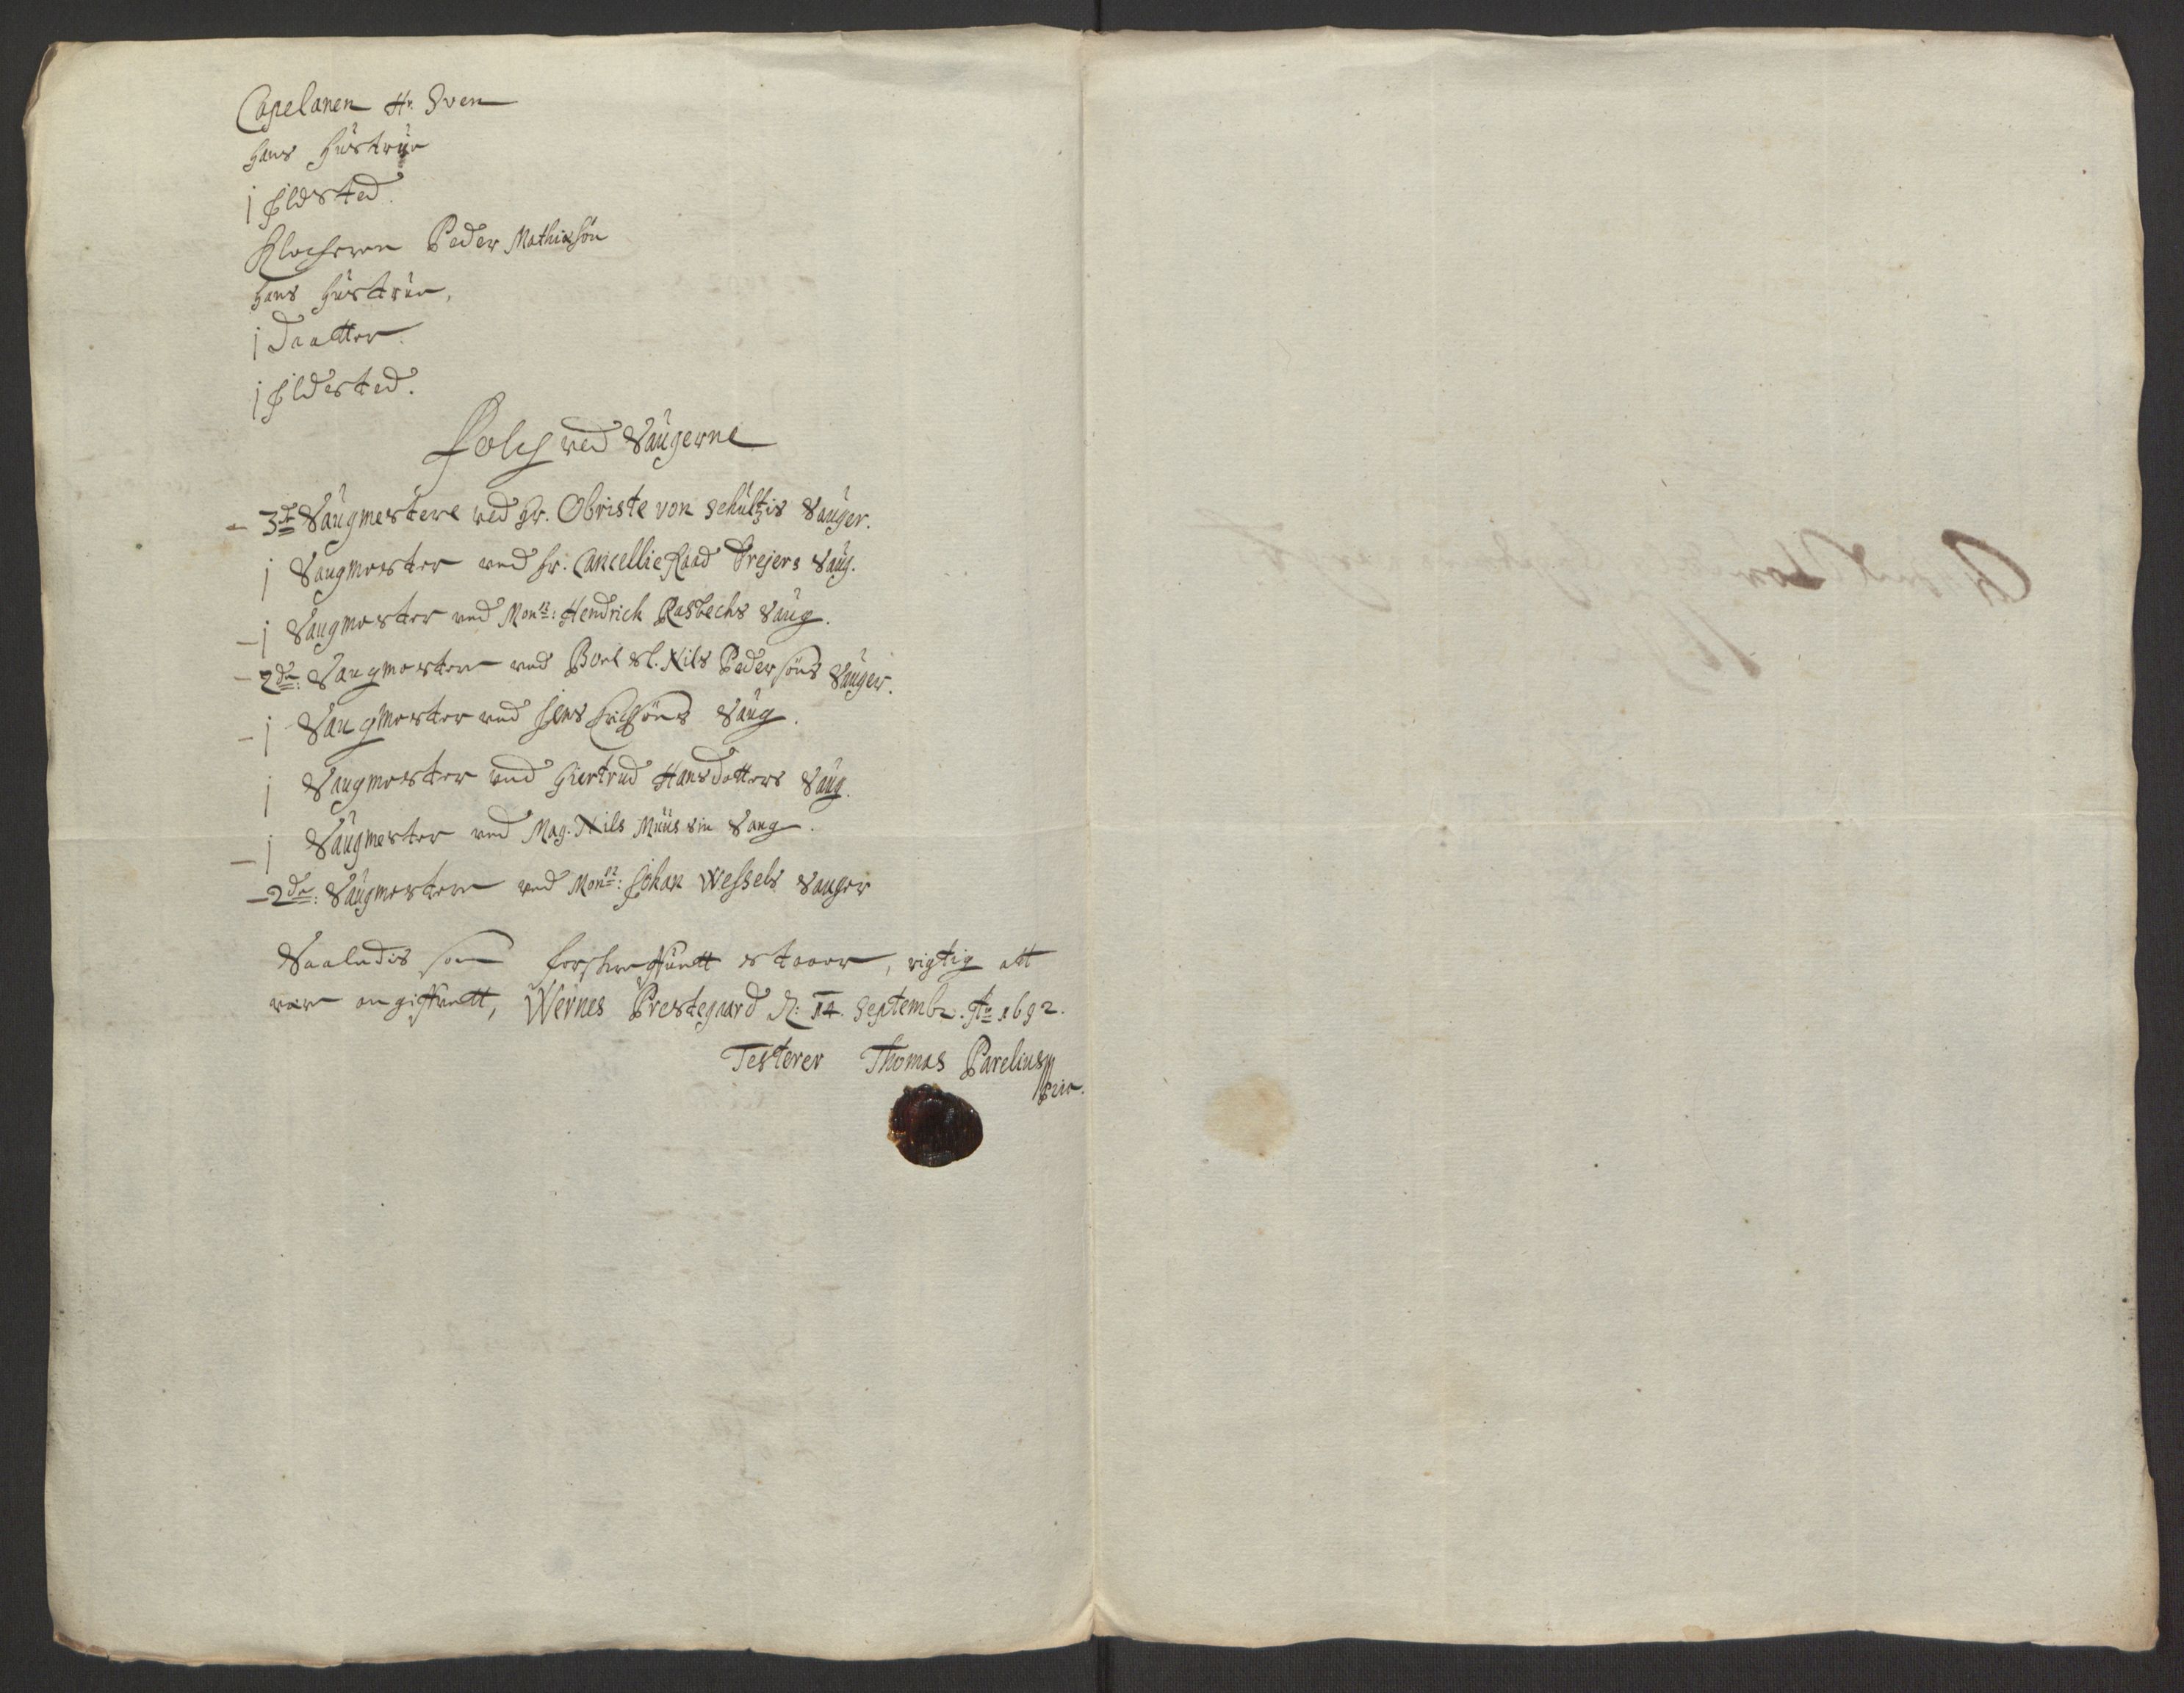 Capelanen Hr. Sven
Hans Hüstrüe
j Jldsted.
Klocheren Peder Mathiasön
Hans Hüstrüe,
j Daatter.
j Jldested.
Folch ved Saugerne
- 3de Saugmestere ved Hr. Obriste von Schültzis Sauger.
j Saugmester ved Hr. Cancellie Raad Drejers Saug.
- j Saugmester ved Monsr: Hendrich Rasbechs Saug.
- 2de: Saugmestere ved Boel Sl. Nils Pedersöns Sauger.
- j Saugmester ved Jens Saug.
j Saugmester ved Giertrud Hansdatters Saug.
- j Saugmester ved Mag. Nils Müüs sin Saug.
- 2de: Saugmestere ved Monsr: Johan Wessels Sauger
Saaledis som forskreffuett staaer, rigtig att
vere angiffuett, Wernes Prestegaard d: 14. Septembr. Ao 1692.
Testerer Thomas Parelius